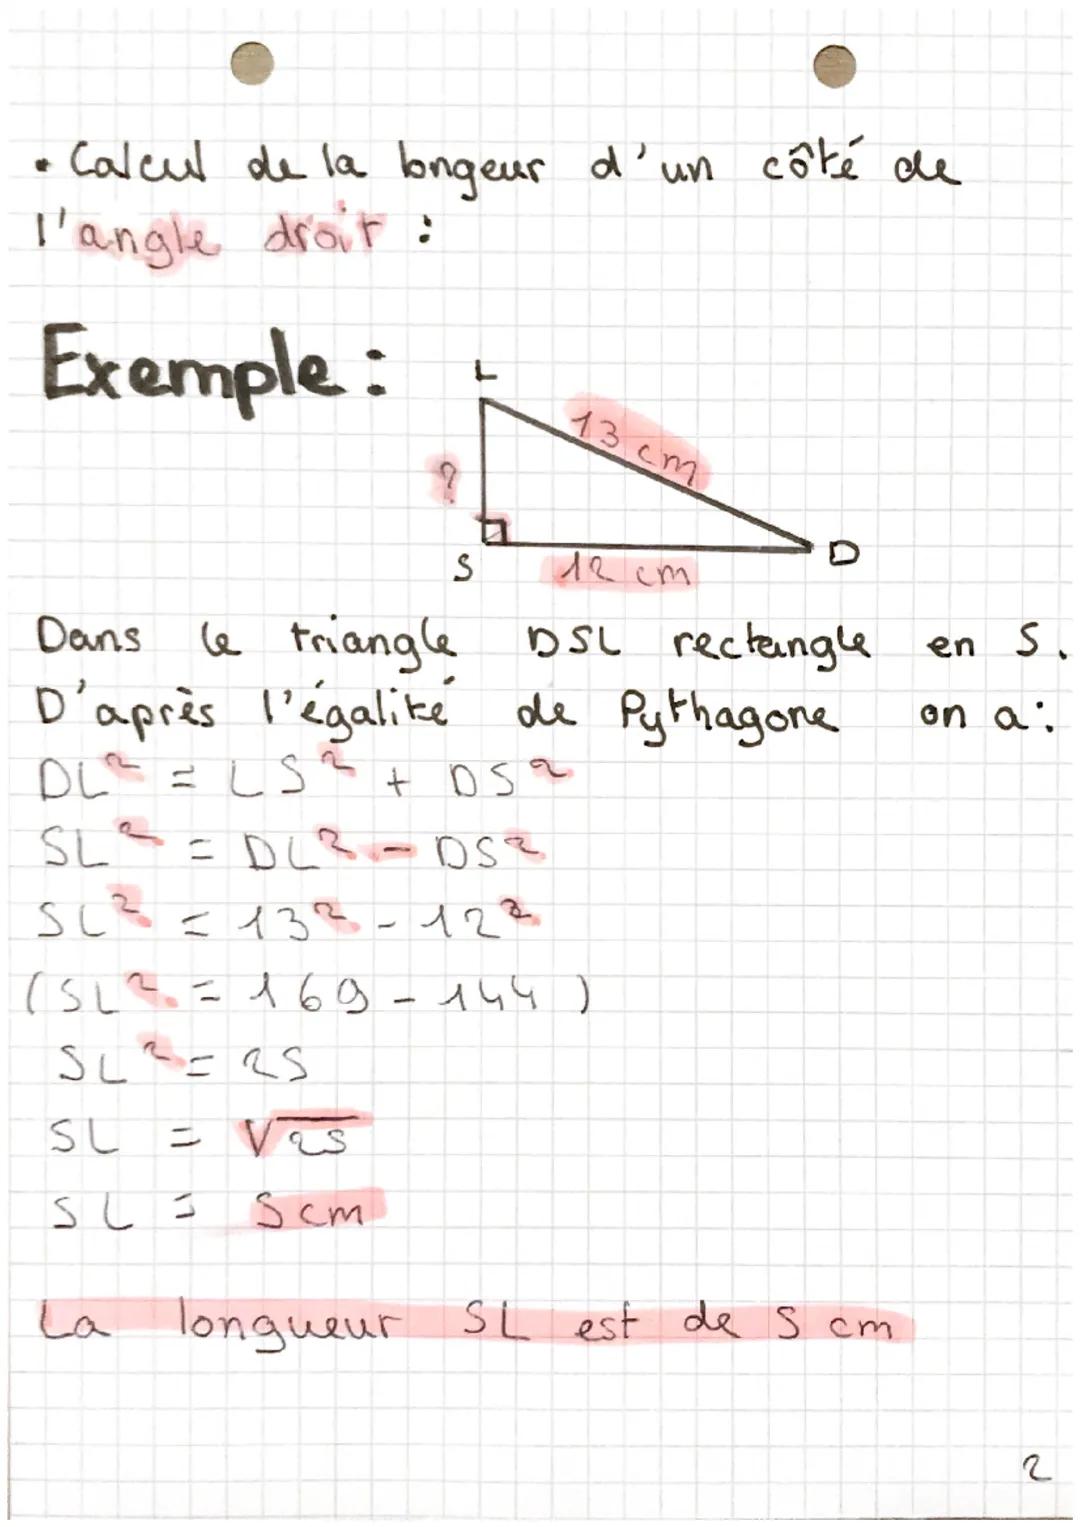 • Calcul de la longeur d'un côté de
l'angle droit :
Exemple :
L
13 cm
?
S
12 cm
D
Dans le triangle DSL rectangle en S.
D'après l'égalité de Pythagore on a :
DL² = LS² + DS²
SL² = DL² - DS²
SL² = 13² - 12²
(SL² = 169 - 144)
SL² = 25
SL = √25
SL = 5 cm
La longueur SL est de 5 cm
2